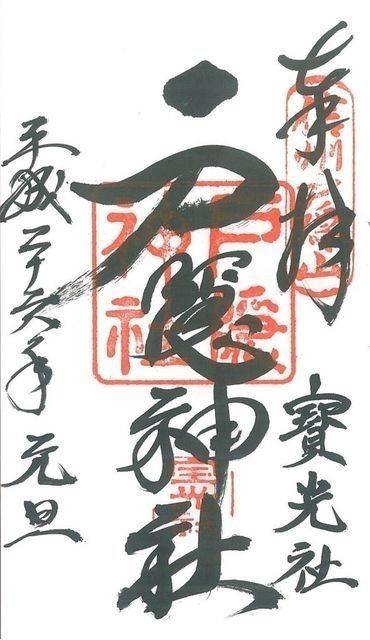 奉拝
寶光社
戸隠神社
戸隠
神社
平成二十六年 元旦